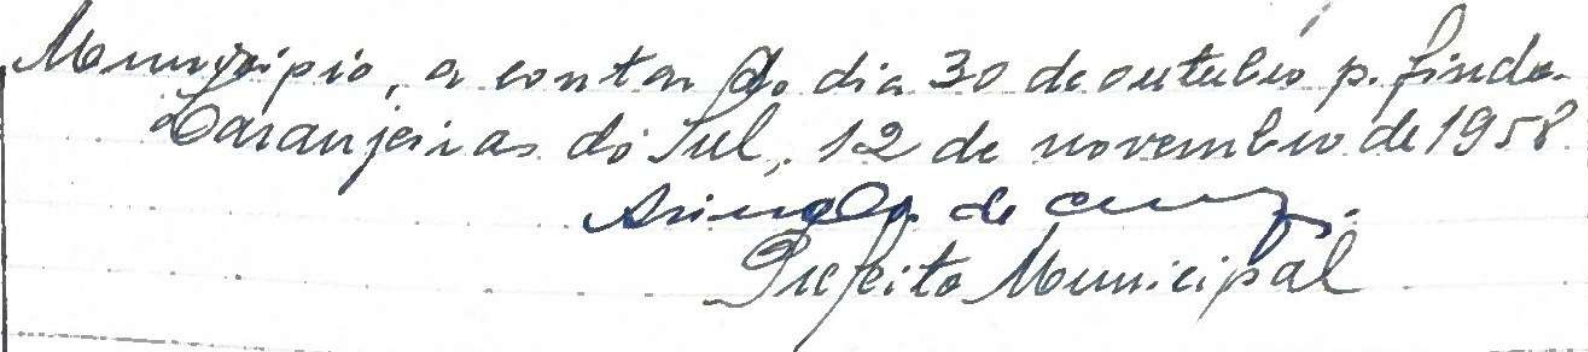 Município, a contar do dia 30 de outubro p. findo.
Laranjeiras do Sul, 12 de novembro de 1958.
de
Prefeito Municipal